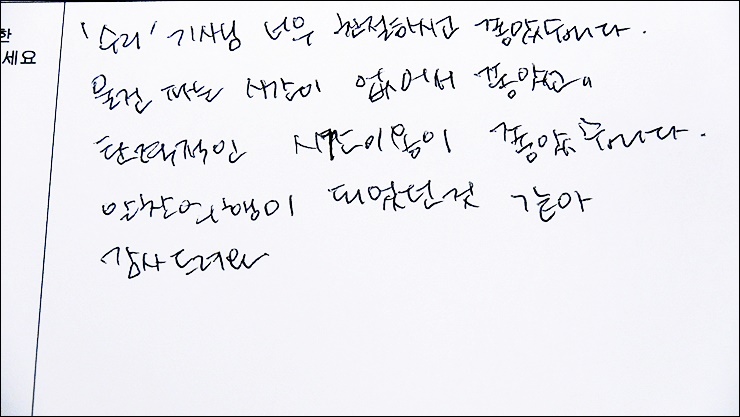 한
세요
'수리' 기사님 너무 친절하시고 좋았습니다.
물건 파는 시간이 없어서 좋았고,
탄력적인 시간이용이 좋았습니다.
알찬여행이 되었던것 같아
감사드려요